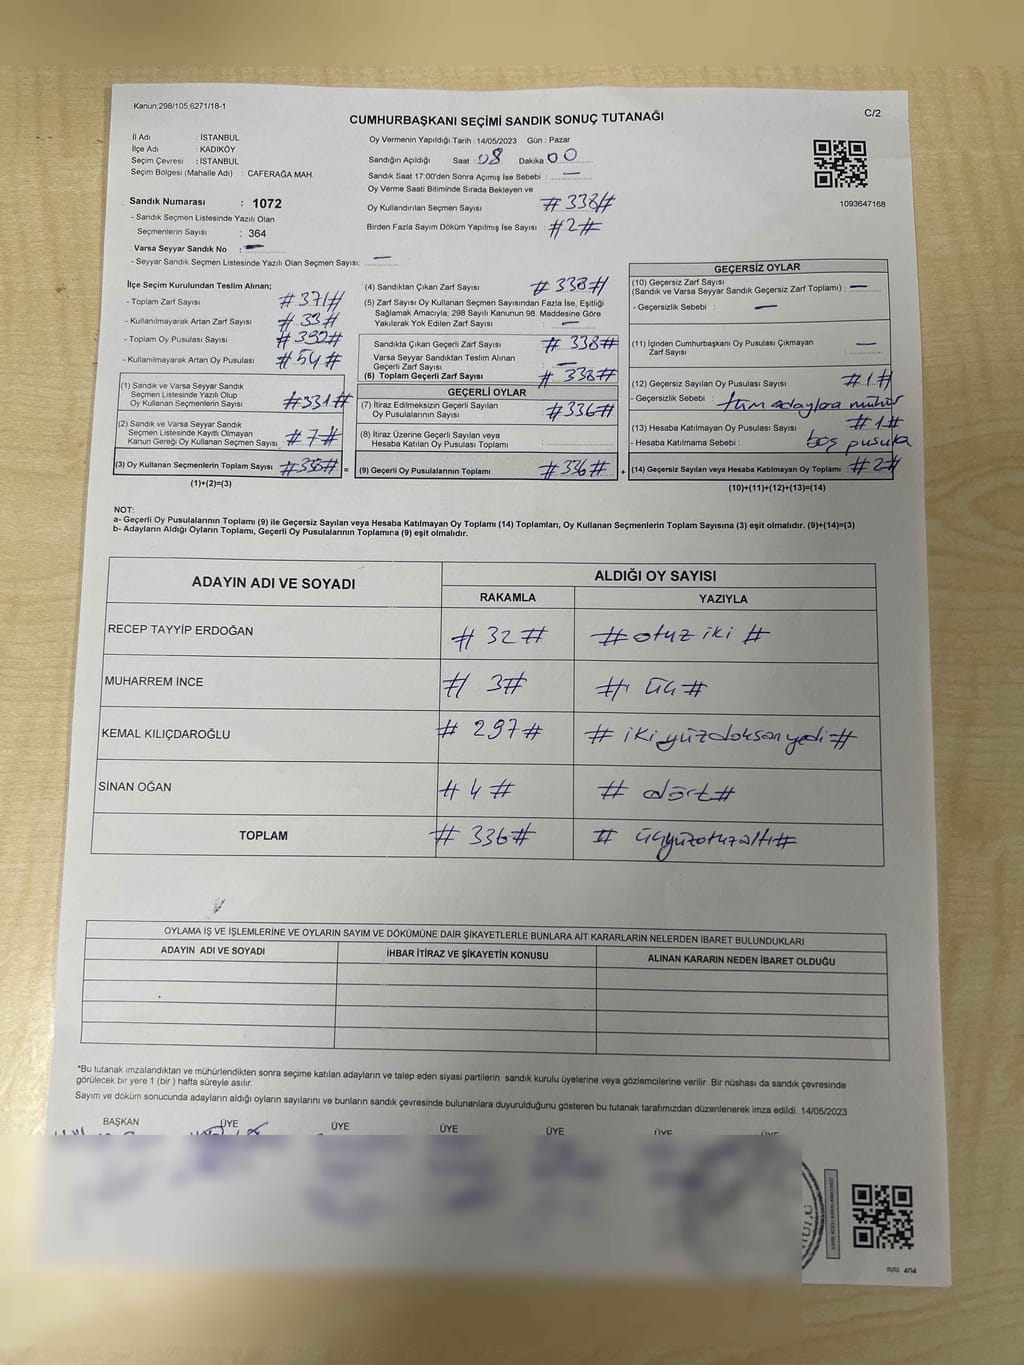 Kanun:298/105;6271/18-1
C/2
CUMHURBAŞKANI SEÇİMİ SANDIK SONUÇ TUTANAĞI
İl Adı : İSTANBUL
İlçe Adı : KADIKÖY
Seçim Çevresi : İSTANBUL
Seçim Bölgesi (Mahalle Adı) : CAFERAĞA MAH.
Sandık Numarası : 1072
- Sandık Seçmen Listesinde Yazılı Olan
Seçmenlerin Sayısı : 364
Varsa Seyyar Sandık No : —
- Seyyar Sandık Seçmen Listesinde Yazılı Olan Seçmen Sayısı: —
Oy Vermenin Yapıldığı Tarih : 14/05/2023 Gün : Pazar
Sandığın Açıldığı Saat : 08 Dakika 00
Sandık Saat 17:00'den Sonra Açılmış İse Sebebi : —
Oy Verme Saati Bitiminde Sırada Bekleyen ve
Oy Kullandırılan Seçmen Sayısı # 338 #
Birden Fazla Sayım Döküm Yapılmış İse Sayısı : # 2 #
1093647168
İlçe Seçim Kurulundan Teslim Alınan;
- Toplam Zarf Sayısı # 371 #
- Kullanılmayarak Artan Zarf Sayısı # 33 #
- Toplam Oy Pusulası Sayısı
- Kullanılmayarak Artan Oy Pusulası # 54 #
(1) Sandık ve Varsa Seyyar Sandık
Seçmen Listesinde Yazılı Olup
Oy Kullanan Seçmenlerin Sayısı # 331 #
(2) Sandık ve Varsa Seyyar Sandık
Seçmen Listesinde Kayıtlı Olmayan
Kanun Gereği Oy Kullanan Seçmen Sayısı # 7 #
(3) Oy Kullanan Seçmenlerin Toplam Sayısı # 338 # =
(1)+(2)=(3)
(4) Sandıktan Çıkan Zarf Sayısı # 338 #
(5) Zarf Sayısı Oy Kullanan Seçmen Sayısından Fazla İse, Eşitliği
Sağlamak Amacıyla; 298 Sayılı Kanunun 98. Maddesine Göre
Yakılarak Yok Edilen Zarf Sayısı : —
Sandıkta Çıkan Geçerli Zarf Sayısı # 338 #
Varsa Seyyar Sandıktan Teslim Alınan
Geçerli Zarf Sayısı : —
(6) Toplam Geçerli Zarf Sayısı # 338 #
GEÇERLİ OYLAR
(7) İtiraz Edilmeksizin Geçerli Sayılan
Oy Pusulalarının Sayısı : # 336 #
(8) İtiraz Üzerine Geçerli Sayılan veya
Hesaba Katılan Oy Pusulası Toplamı :
(9) Geçerli Oy Pusulalarının Toplamı # 336 # +
GEÇERSİZ OYLAR
(10) Geçersiz Zarf Sayısı
(Sandık ve Varsa Seyyar Sandık Geçersiz Zarf Toplamı) : —
- Geçersizlik Sebebi : —
(11) İçinden Cumhurbaşkanı Oy Pusulası Çıkmayan
Zarf Sayısı —
(12) Geçersiz Sayılan Oy Pusulası Sayısı # 1 #
- Geçersizlik Sebebi : tüm adaylara mühür
(13) Hesaba Katılmayan Oy Pusulası Sayısı # 1 #
- Hesaba Katılmama Sebebi : boş pusula
(14) Geçersiz Sayılan veya Hesaba Katılmayan Oy Toplamı # 2 #
(10)+(11)+(12)+(13)=(14)
NOT:
a- Geçerli Oy Pusulalarının Toplamı (9) ile Geçersiz Sayılan veya Hesaba Katılmayan Oy Toplamı (14) Toplamları, Oy Kullanan Seçmenlerin Toplam Sayısına (3) eşit olmalıdır. (9)+(14)=(3)
b- Adayların Aldığı Oyların Toplamı, Geçerli Oy Pusulalarının Toplamına (9) eşit olmalıdır.
ADAYIN ADI VE SOYADI ALDIĞI OY SAYISI
RAKAMLA YAZIYLA
RECEP TAYYİP ERDOĞAN # 32 # # otuz iki #
MUHARREM İNCE # 3 # # üç #
KEMAL KILIÇDAROĞLU # 297 # # ikiyüzdoksanyedi #
SİNAN OĞAN # 4 # # dört #
TOPLAM # 336 # # üçyüzotuzaltı #
OYLAMA İŞ VE İŞLEMLERİNE VE OYLARIN SAYIM VE DÖKÜMÜNE DAİR ŞİKAYETLERLE BUNLARA AİT KARARLARIN NELERDEN İBARET BULUNDUKLARI
ADAYIN ADI VE SOYADI İHBAR İTİRAZ VE ŞİKAYETİN KONUSU ALINAN KARARIN NEDEN İBARET OLDUĞU
*Bu tutanak imzalandıktan ve mühürlendikten sonra seçime katılan adayların ve talep eden siyasi partilerin sandık kurulu üyelerine veya gözlemcilerine verilir .Bir nüshası da sandık çevresinde
görülecek bir yere 1 (bir ) hafta süreyle asılır.
Sayım ve döküm sonucunda adayların aldığı oyların sayılarını ve bunların sandık çevresinde bulunanlara duyurulduğunu gösteren bu tutanak tarafımızdan düzenlenerek imza edildi. 14/05/2023
BAŞKAN ÜYE ÜYE ÜYE ÜYE ÜYE ÜYE